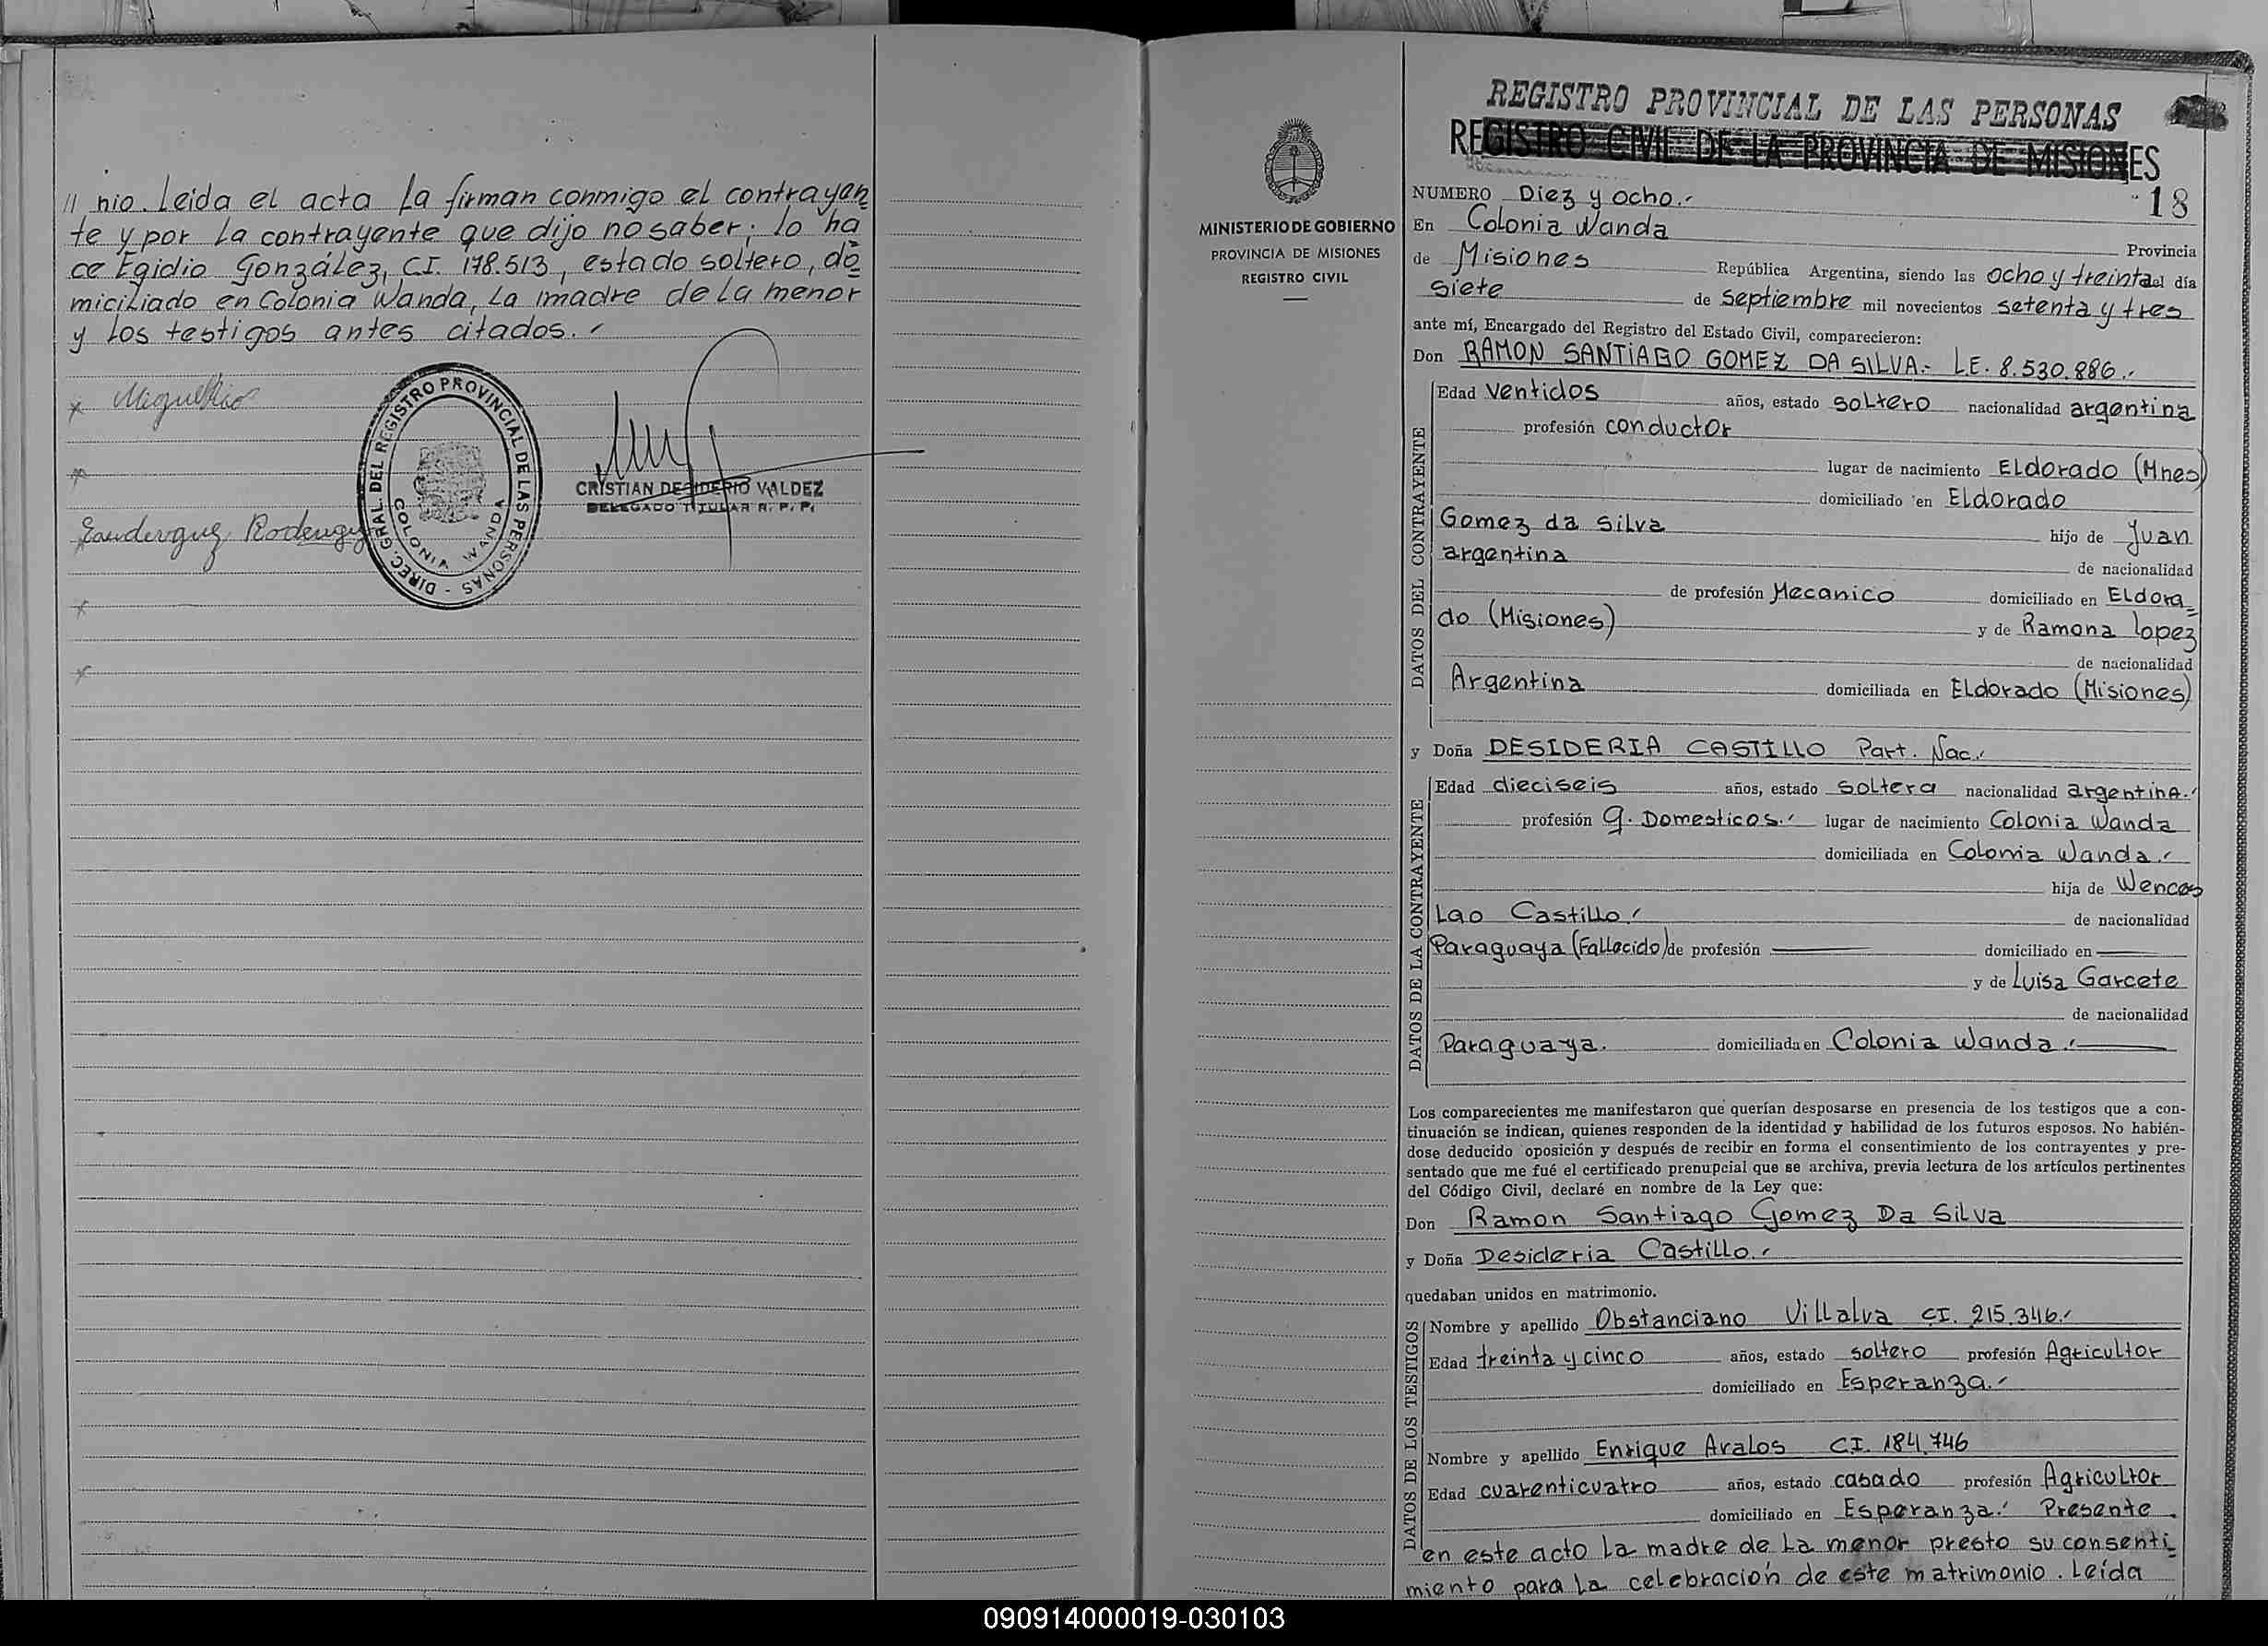 // nio. Leida el acta la firman conmigo el contrayen
te y por la contrayente que dijo no saber; lo ha
ce Egidio González, C.I. 178.513, estado soltero, do
miciliado en Colonia Wanda, la madre de la menor
y los testigos antes citados.
DIREC. GRAL. DEL REGISTRO PROVINCIAL DE LAS PERSONAS -
COLONIA WANDA
CRISTIAN DESIDERIO VALDEZ
DELEGADO TITULAR R. P. P.
MINISTERIO DE GOBIERNO
PROVINCIA DE MISIONES
REGISTRO CIVIL
REGISTRO PROVINCIAL DE LAS PERSONAS
REGISTRO CIVIL DE LA PROVINCIA DE MISIONES
NUMERO Diez y ocho.-
18
En Colonia Wanda Provincia
de Misiones República Argentina, siendo las ocho y treinta del día
siete de septiembre mil novecientos setenta y tres
ante mí, Encargado del Registro del Estado Civil, comparecieron:
Don RAMON SANTIAGO GOMEZ DA SILVA.- L.E. 8.530.886.-
DATOS DEL CONTRAYENTE
Edad ventidos años, estado soltero nacionalidad argentina
profesión conductor
lugar de nacimiento Eldorado (Mnes)
domiciliado en Eldorado
Gomez da Silva hijo de Juan
argentina de nacionalidad
de profesión Mecanico domiciliado en Eldora=
do (Misiones) y de Ramona Lopez
de nacionalidad
Argentina domiciliada en Eldorado (Misiones)
y Doña DESIDERIA CASTILLO Part. Nac.
DATOS DE LA CONTRAYENTE
Edad dieciseis años, estado soltera nacionalidad argentina.
profesión Q. Domesticos. lugar de nacimiento Colonia Wanda
domiciliada en Colonia Wanda.
hija de Wences
Lao Castillo. de nacionalidad
Paraguaya (Fallecido) de profesión domiciliado en
y de Luisa Garcete
de nacionalidad
Paraguaya. domiciliada en Colonia Wanda.
Los comparecientes me manifestaron que querían desposarse en presencia de los testigos que a con-
tinuación se indican, quienes responden de la identidad y habilidad de los futuros esposos. No habién-
dose deducido oposición y después de recibir en forma el consentimiento de los contrayentes y pre-
sentado que me fué el certificado prenupcial que se archiva, previa lectura de los artículos pertinentes
del Código Civil, declaré en nombre de la Ley que:
Don Ramon Santiago Gomez Da Silva
y Doña Desideria Castillo.
quedaban unidos en matrimonio.
DATOS DE LOS TESTIGOS
Nombre y apellido Obstanciano Villalva C.I. 215.346.
Edad treinta y cinco años, estado soltero profesión Agricultor
domiciliado en Esperanza.
Nombre y apellido Enrique Aralos C.I. 184.746
Edad cuarenticuatro años, estado casado profesión Agricultor
domiciliado en Esperanza. Presente
en este acto la madre de la menor presto su consenti=
miento para la celebración de este matrimonio. Leída
//
090914000019-030103